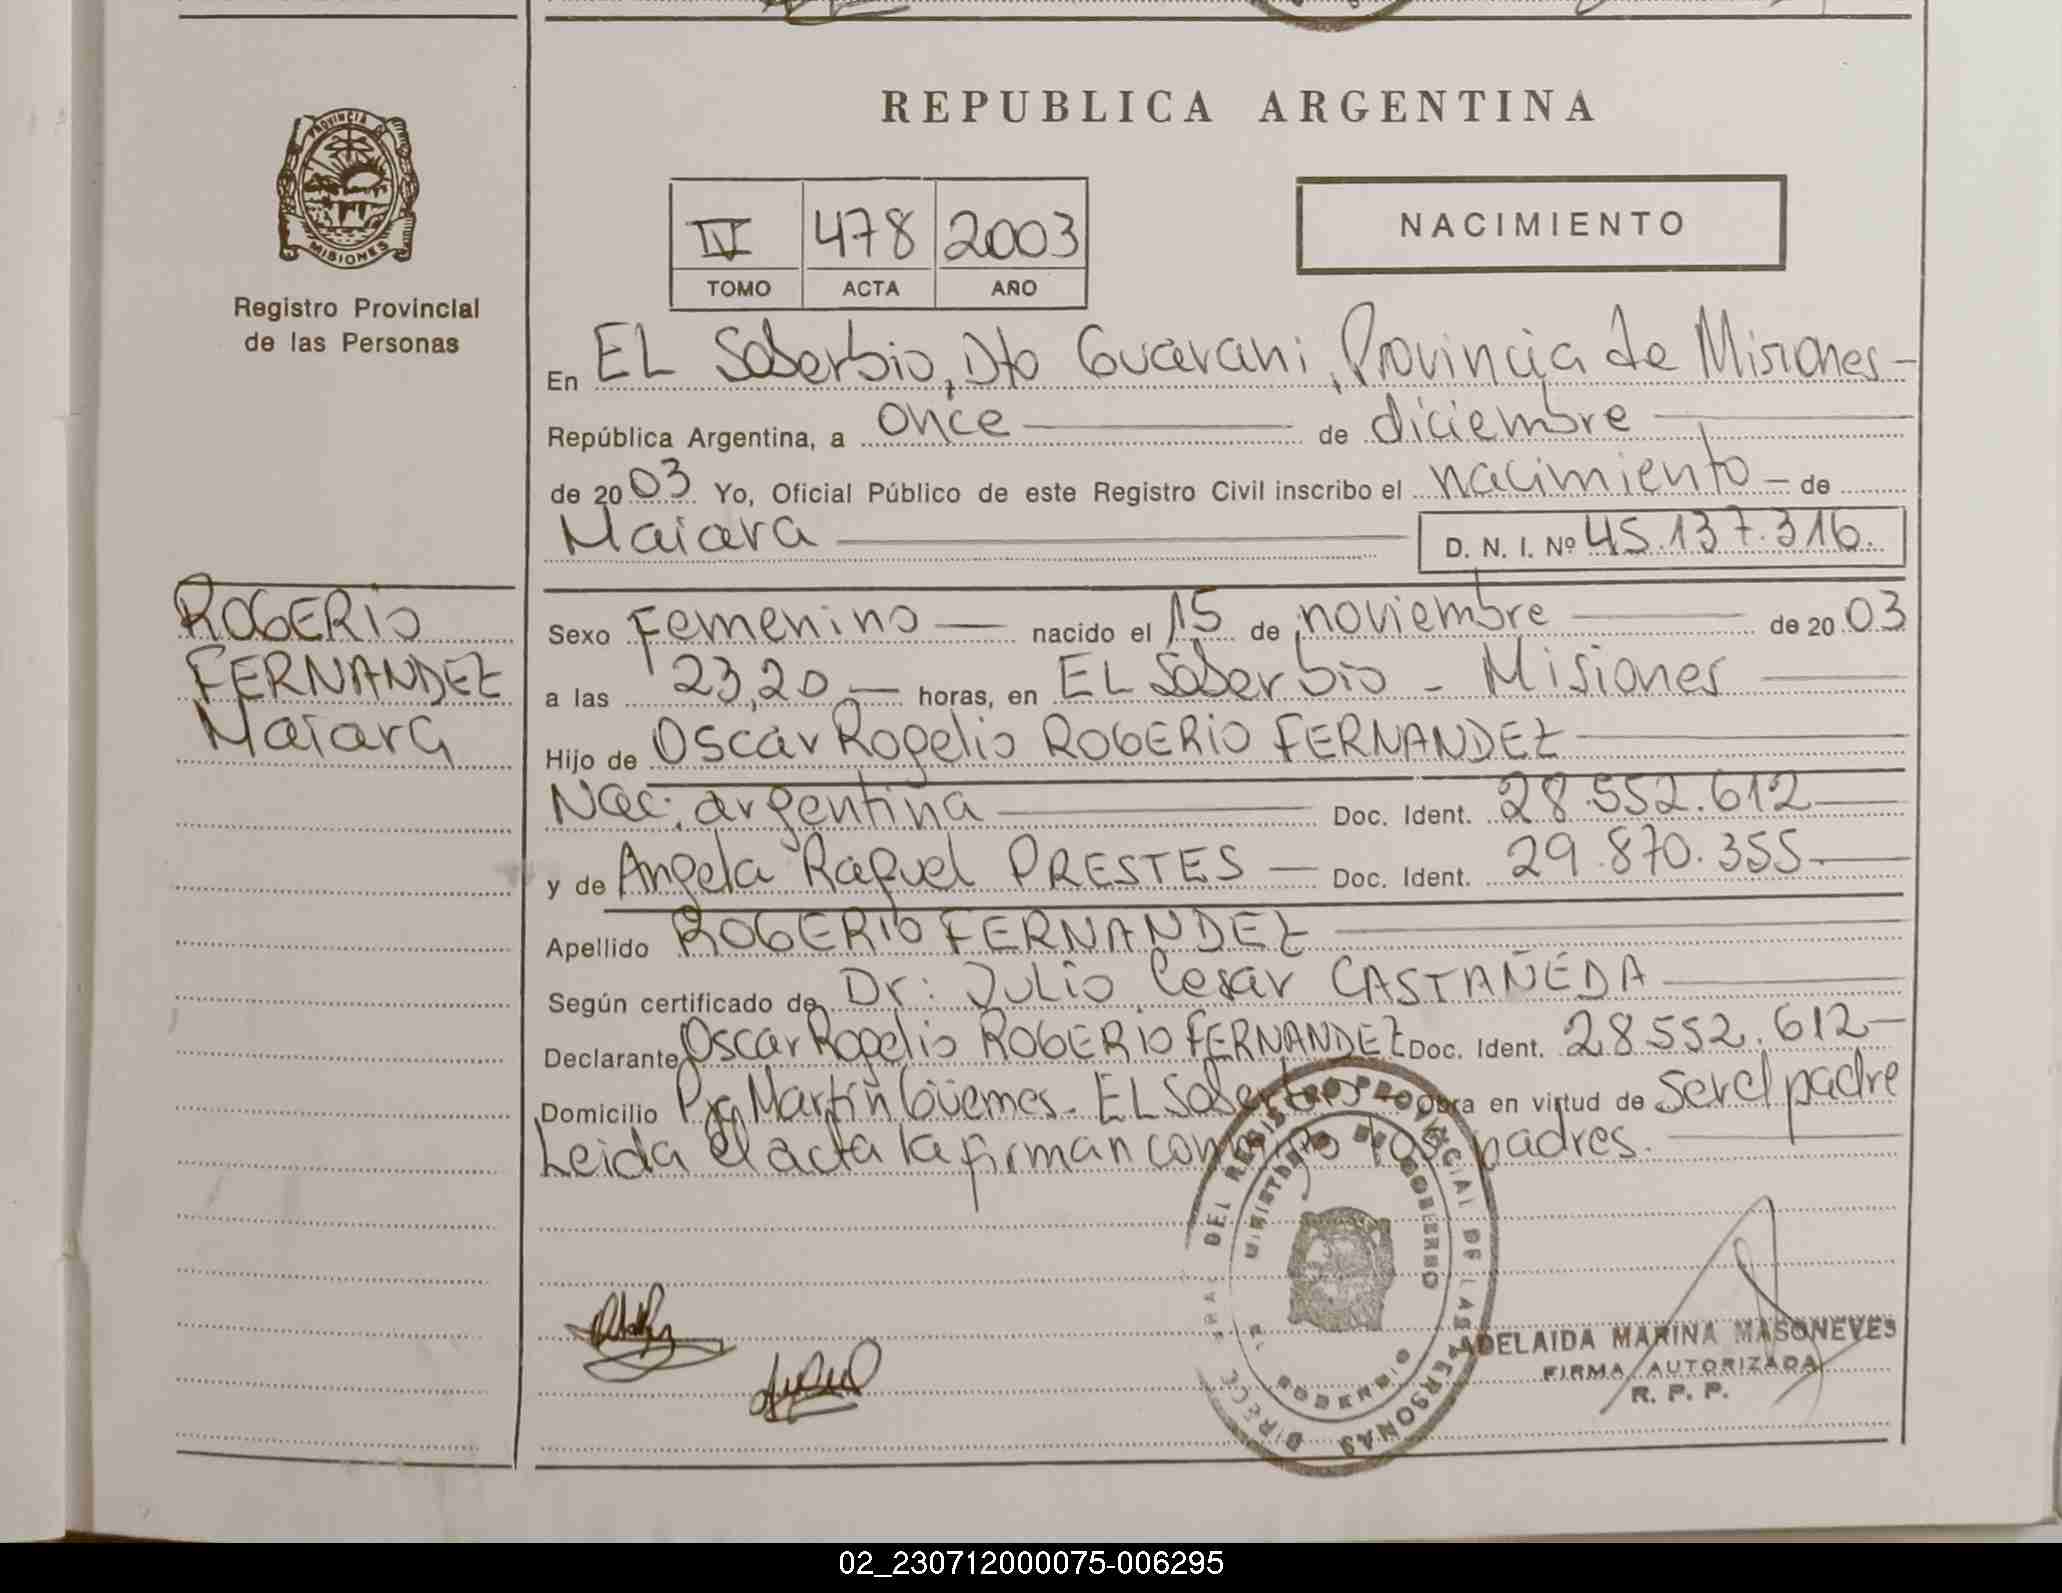 REPUBLICA ARGENTINA
PROVINCIA DE
MISIONES
Registro Provincial
de las Personas
IV 478 2003
TOMO ACTA AÑO
NACIMIENTO
En EL Soberbio, Dto Guarani, Provincia de Misiones-
República Argentina, a once de diciembre
de 2003 Yo, Oficial Público de este Registro Civil inscribo el nacimiento - de
Maiara D. N. I. Nº 45.137.316.
ROGERIO
FERNANDEZ
Maiara
Sexo Femenino nacido el 15 de noviembre de 2003
a las 23,20 horas, en EL Soberbio - Misiones
Hijo de Oscar Rogelio ROGERIO FERNANDEZ
Nac: argentina Doc. Ident. 28.552.612
y de Angela Raquel PRESTES Doc. Ident. 29.870.355
Apellido ROGERIO FERNANDEZ
Según certificado de Dr: Julio Cesar CASTAÑEDA
Declarante Oscar Rogelio ROGERIO FERNANDEZ Doc. Ident. 28.552.612
Domicilio Pje Martín Güemes - EL Soberbio Obra en virtud de ser el padre
Leida el acta la firman conmigo los padres.
DEL REGISTRO PROVINCIAL DE LAS PERSONAS
MINISTERIO DE GOBIERNO
SOBERBIO
ADELAIDA MARINA MASONEVES
FIRMA AUTORIZADA
R. P. P.
02_230712000075-006295